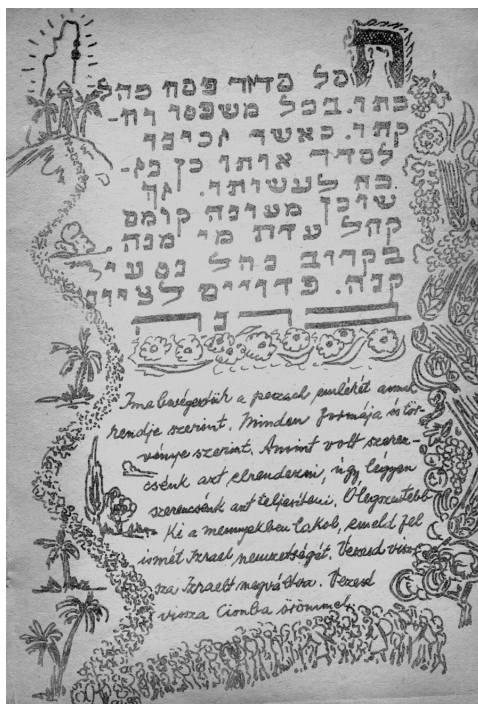 חסל סדור פסח כהל
כתו. ככל משפטו וח-
קתו. כאשר זכינו
לסדר אותו כן נז-
כה לעשותו. זך
שוכן מעונה קומם
קהל עדת מי מנה
בקרוב נהל נטעי
קנה. פדויים לציון
ברנה
Íma bevégeztük a peszach emlékét annak
rendje szerint. Minden formája és tör-
vénye szerint. Amint volt szeren-
csénk azt elrendezni, úgy légyen
szerencsénk azt teljesíteni. Ó legszentebb
Ki a mennyekben lakol, emeld fel
ismét Izrael nemzetségét. Vezesd visz-
sza Izraelt megváltva. Vezesd
vissza Cionba örömmel.